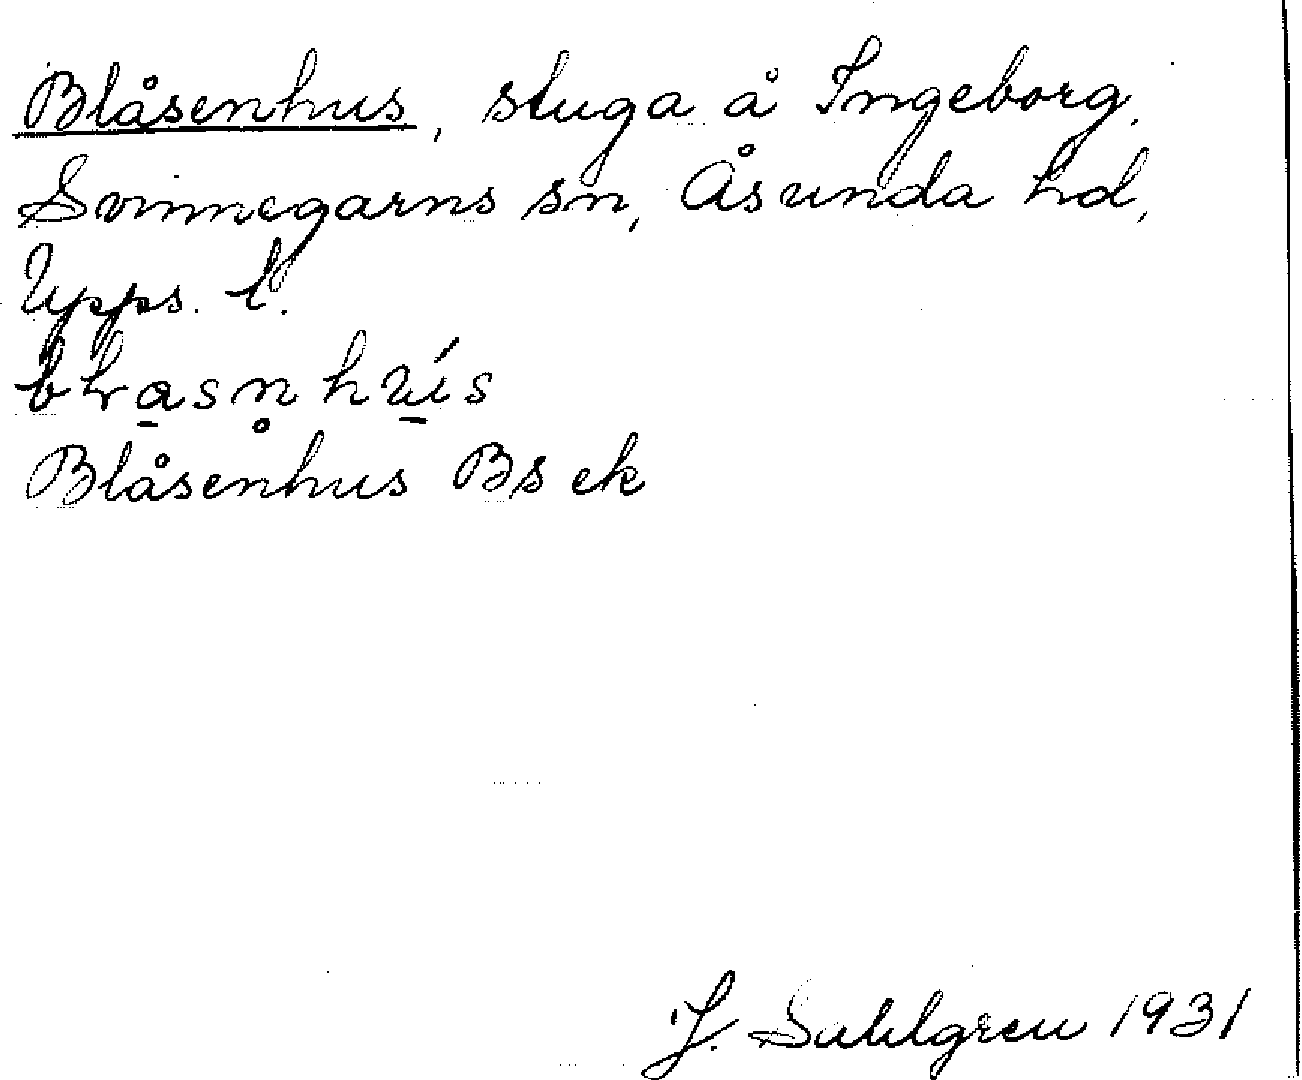 Blåsenhus, stuga å Ingeborg.
Svinnegarns sn, Åsunda hd,
Upps. l.
Blåsenhus Bs ek
J. Sahlgren 1931